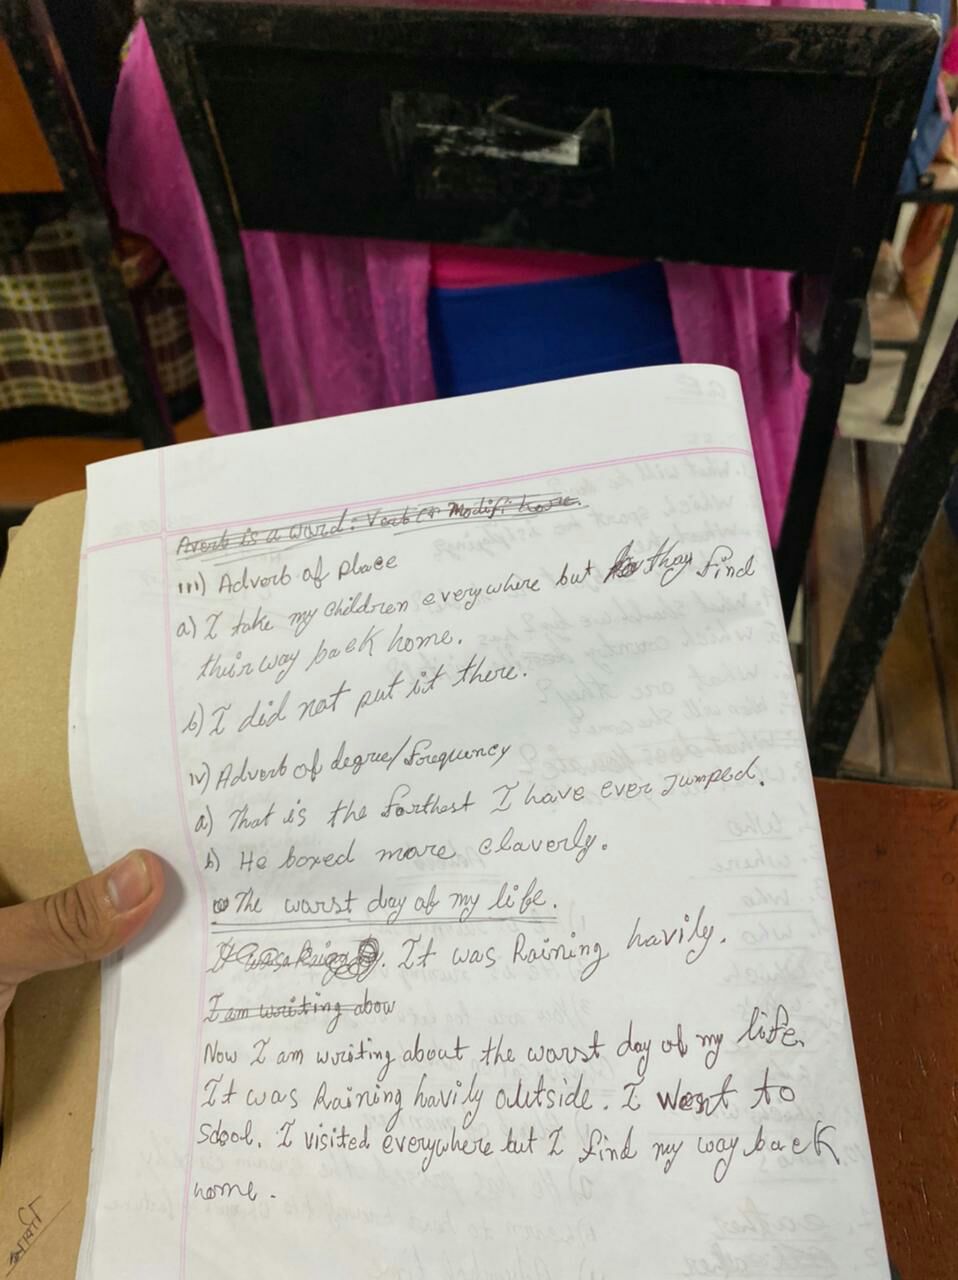 Averb is a ward: Verb Modifi
iii) Adverb of place
a) I take my children everywhere but they find
thur way back home.
b) I did not put it there.
iv) Adverb of degree/forequency
a) That is the farthest I have ever Jumped.
b) He boxed more claverly.
The warst day of my life.
It was Raining havily.
I am writing abow
Now I am writing about the warst day of my life.
It was Raining havily outside. I went to
Scool. I visited everywhere but I find my way back
home.